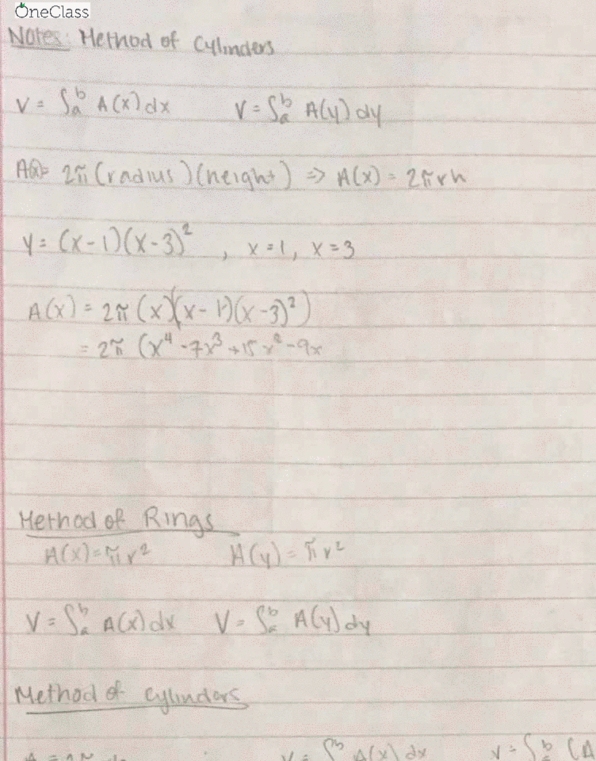 OneClass
Notes: Method of Cylinders
V = ∫ₐᵇ A(x)dx V = ∫ₐᵇ A(y)dy
A(x)= 2π(radius)(height) ⇒ A(x) = 2πrh
y = (x-1)(x-3)² , x=1, x=3
A(x) = 2π(x)(x-1)(x-3)²)
= 2π (x⁴-7x³+15x²-9x
Method of Rings
A(x)=πr² A(y)=πr²
V = ∫ₐᵇ A(x)dx V = ∫ₐᵇ A(y)dy
Method of cylinders
V = ∫ᵇ A(x)dx V = ∫ᵇ (A